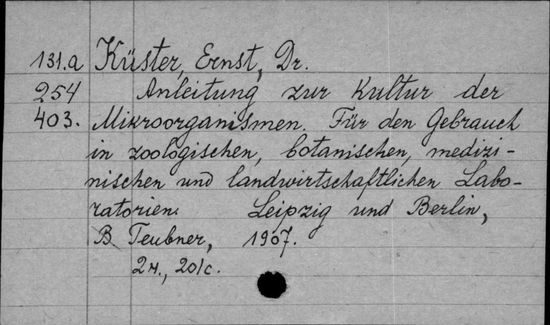 131.a Küster, Ernst, Dr.
254 Anleitung zur Kultur der
403. Mikroorganismen. Für den Gebrauch
in zoologischen, botanischen, medizi-
nischen und landwirtschaftlichen Labo-
ratorien. Leipzig und Berlin,
B. Teubner, 1907.
2 H., 201c.